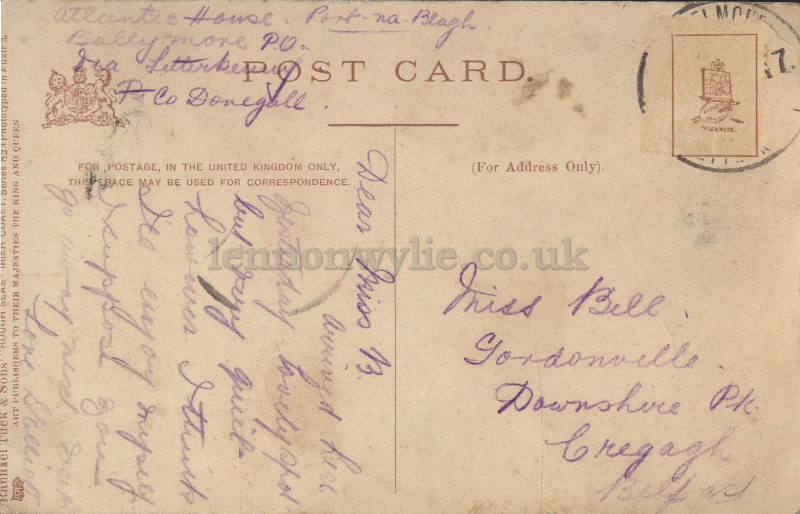 Atlantic House. Port-na-Blagh
Ballymore P.O.
Via Letterkenny
Co Donegall.
POST CARD.
FOR POSTAGE, IN THE UNITED KINGDOM ONLY,
THIS SPACE MAY BE USED FOR CORRESPONDENCE.
(For Address Only).
Dear Miss B.
arrived here
yisterday lovely spot
but very quiet
however I think
I'le enjoy myself
I suppose you
go away next
Love
Miss Bell.
Gordonville.
Downshire Pk.
Cregagh
Belfast
Raphael Tuck & Sons' "ROUGH SEAS" IRISH COAST. Series 823 Phototyped in
ART PUBLISHERS TO THEIR MAJESTIES THE KING AND QUEEN
lennonwylie.co.uk